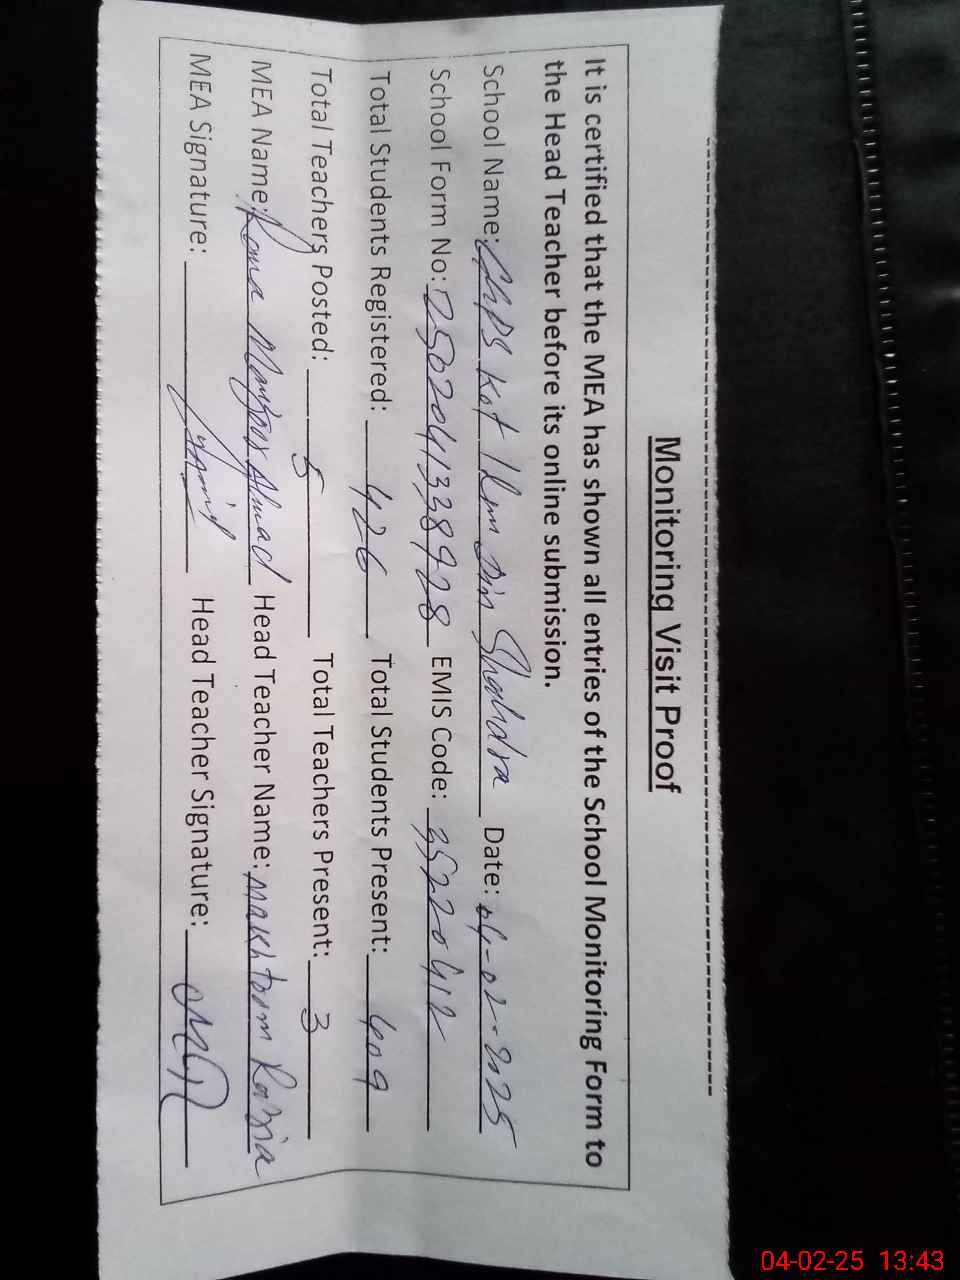 Monitoring Visit Proof
It is certified that the MEA has shown all entries of the School Monitoring Form to
the Head Teacher before its online submission.
School Name: Kot Ilm Din Shahdra Date: 04-02-2025
School Form No: EMIS Code: 35220412
Total Students Registered: 426 Total Students Present: 409
Total Teachers Posted: 5 Total Teachers Present: 3
MEA Name: Rana Ahmad Head Teacher Name: Makhtoom Razia
MEA Signature: Head Teacher Signature:
04-02-25 13:43